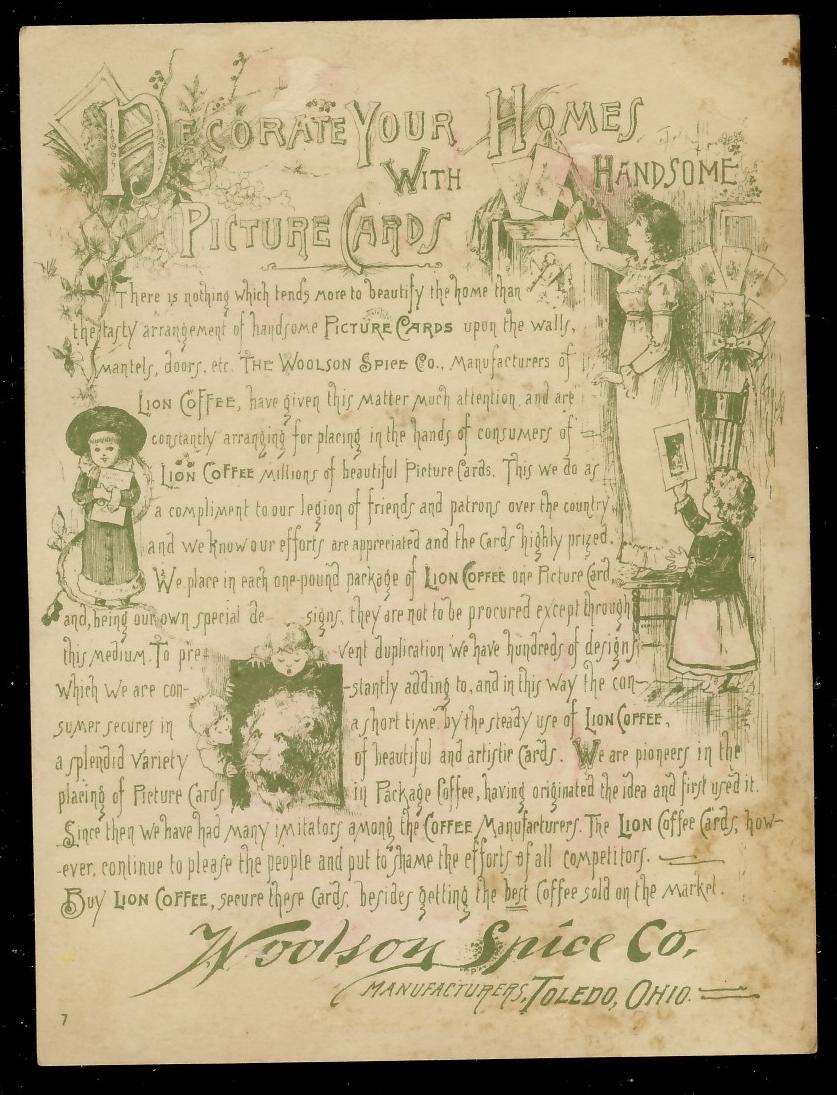 Decorate Your Homes
With Handsome
Picture Cards
There is nothing which tends more to beautify the home than
the tasty arrangement of handsome Picture Cards upon the walls,
mantels, doors, etc. The Woolson Spice Co., Manufacturers of
Lion Coffee, have given this matter much attention, and are
constantly arranging for placing in the hands of consumers of
Lion Coffee millions of beautiful Picture Cards. This we do as
a compliment to our legion of friends and patrons over the country
and we know our efforts are appreciated and the Cards highly prized.
We place in each one-pound package of Lion Coffee one Picture Card,
and, being our own special de signs, they are not to be procured except through
this medium. To pre vent duplication we have hundreds of designs
which we are con- stantly adding to, and in this way the con-
sumer secures in a short time by the steady use of Lion Coffee,
a splendid variety of beautiful and artistic Cards. We are pioneers in the
placing of Picture Cards in Package Coffee, having originated the idea and first used it.
Since then we have had many imitators among the Coffee Manufacturers. The Lion Coffee Cards, how-
-ever, continue to please the people and put to shame the efforts of all competitors.
Buy Lion Coffee, secure these Cards, besides getting the best Coffee sold on the market.
Woolson Spice Co.
Manufacturers, Toledo, Ohio.
7